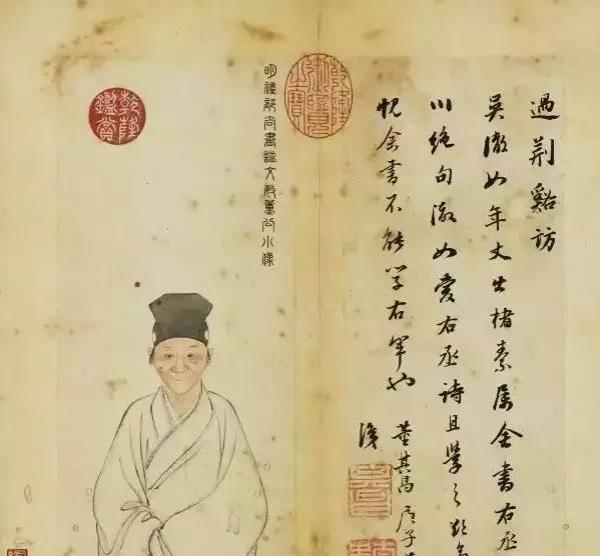 過荆谿訪
吳澈如年丈出楮素属余書右丞
川絕句澈如愛右丞詩且學之
愧余書不能學右軍也
董其昌
識
乾隆御覽之寶
明禮部尚書謚文敏董公小像
乾隆鑑賞